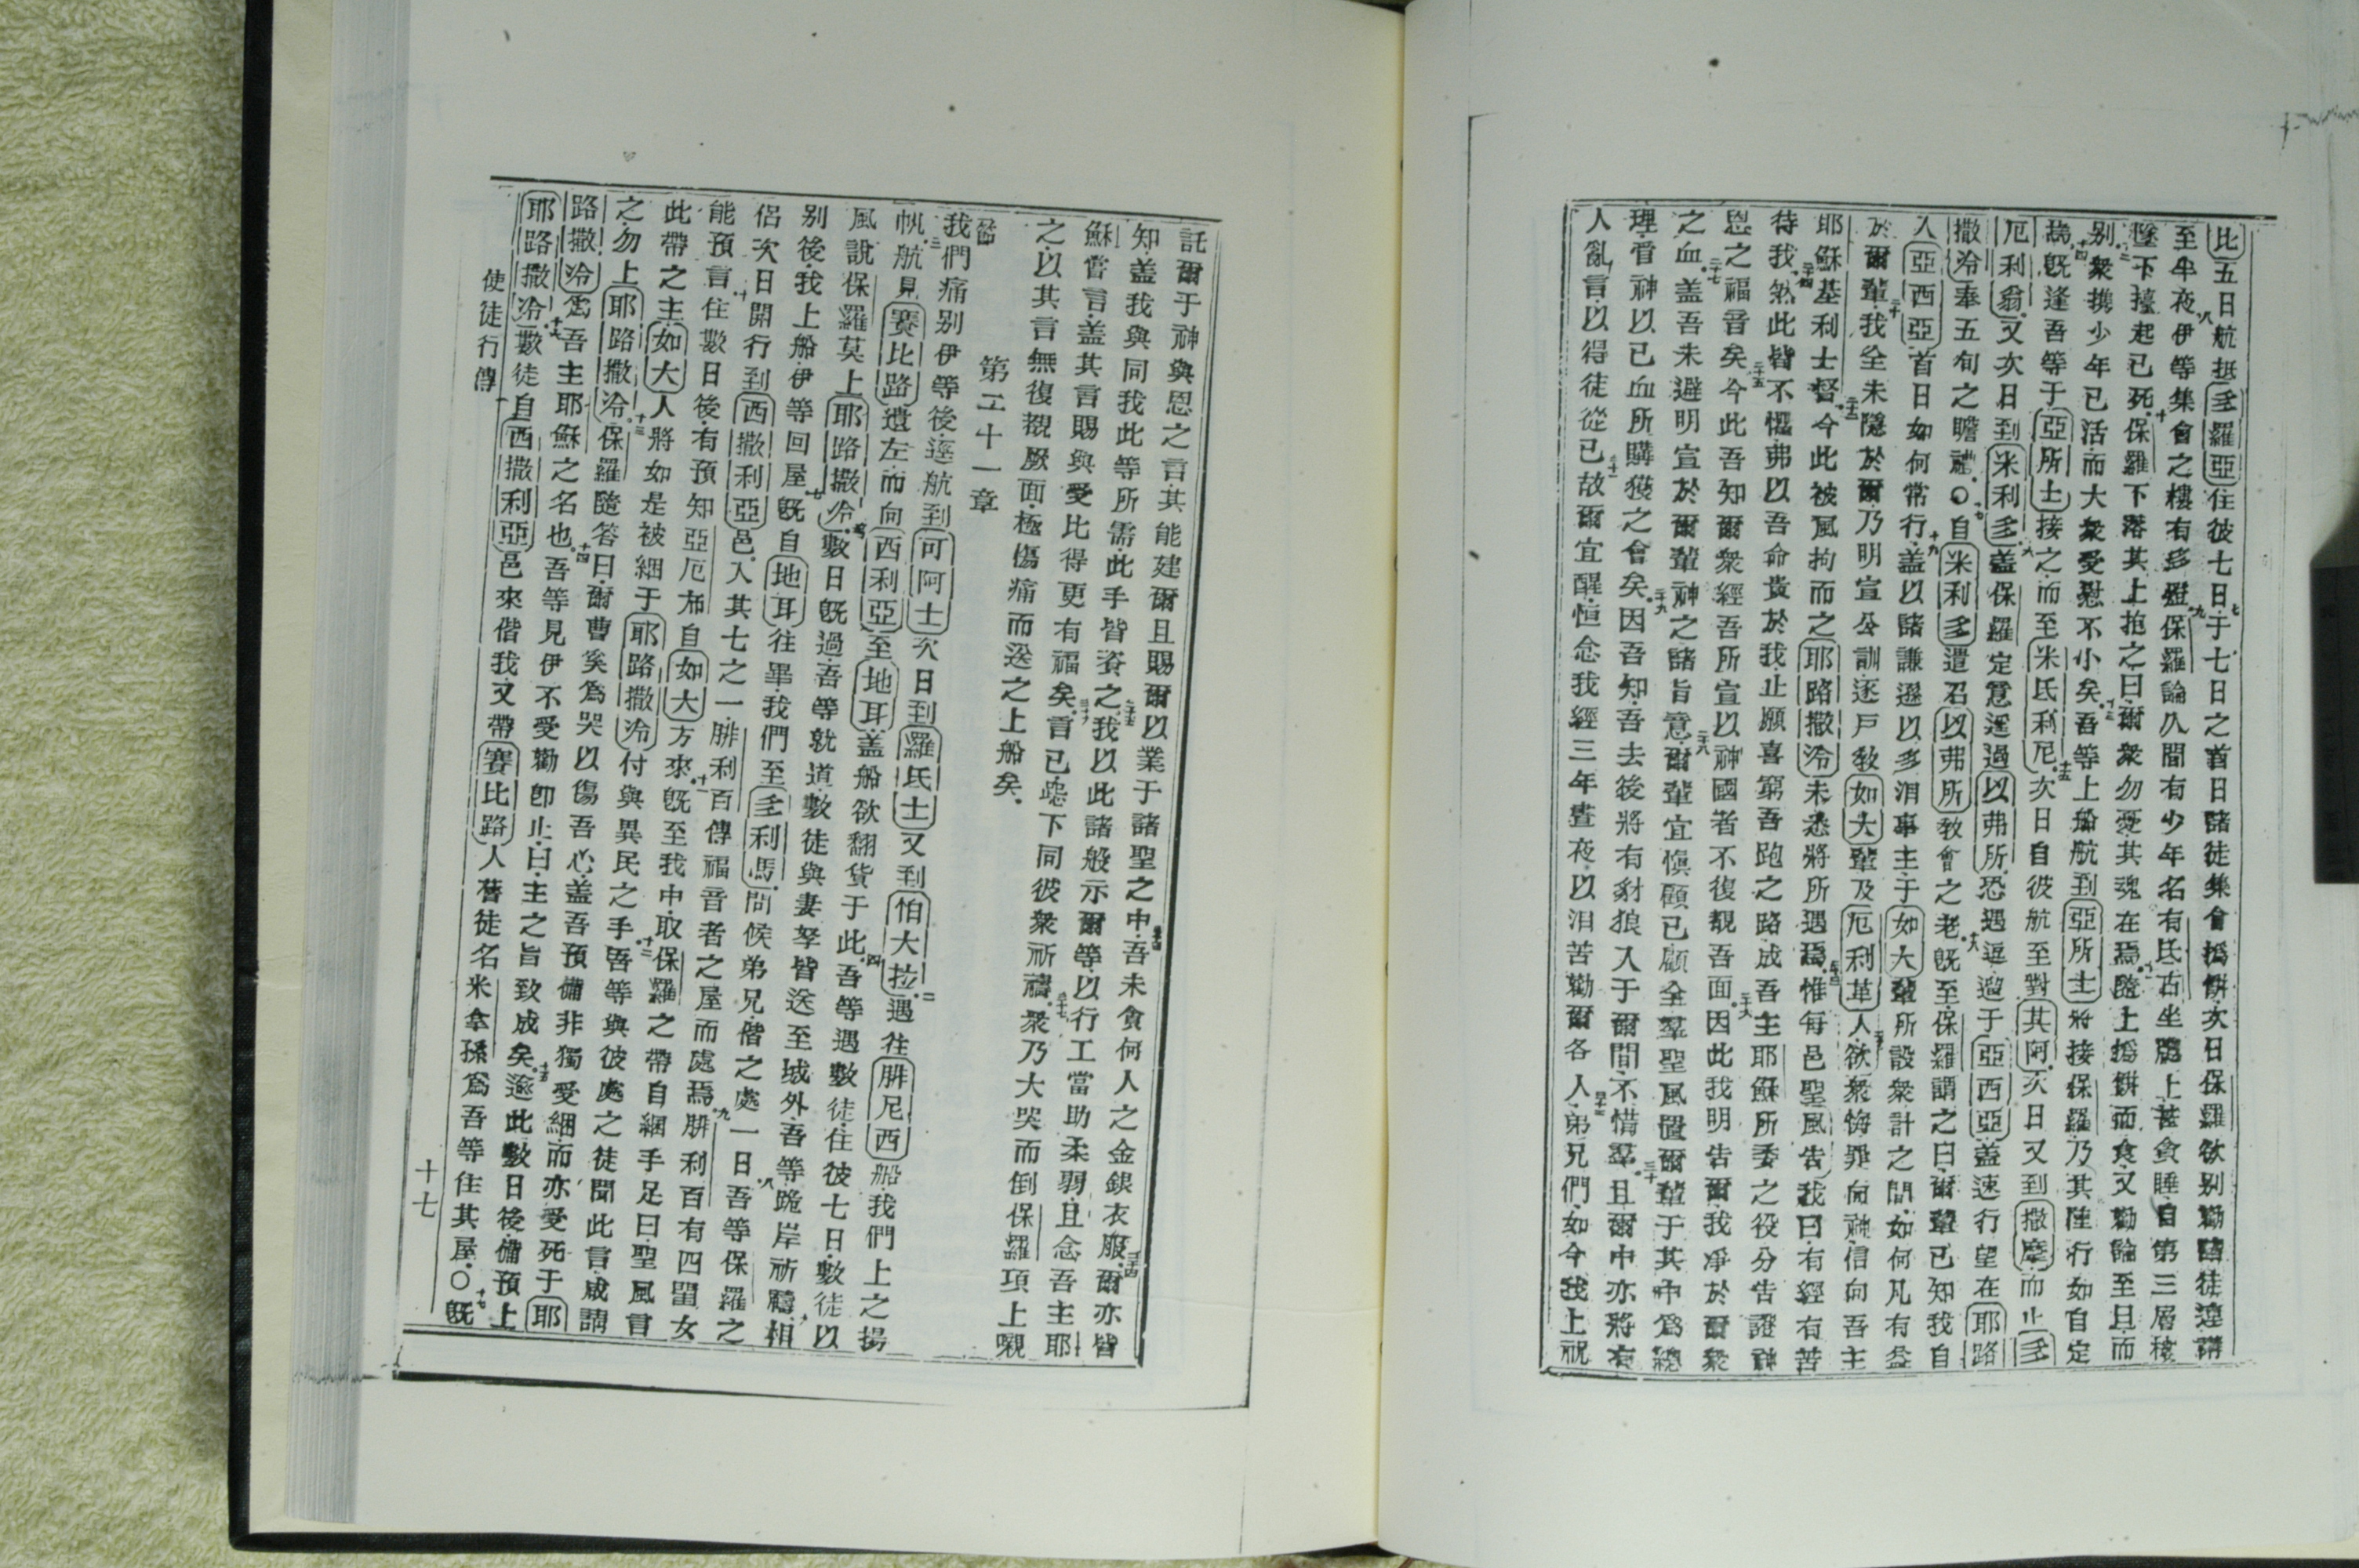 比五日航抵多羅亞住彼七日于七日之首日諸徒集會擘餅次日保羅欲别勸諸徒連講
至半夜伊等集會之樓有多燈保羅論久間有少年名有氏古坐牕上甚貪睡自第三層樓
墜下擡起已死保羅下落其上抱之曰爾衆勿憂其魂在焉隨上擘餅而食又勸論至旦而
别衆携少年已活而大衆受慰不小矣吾等上船航到亞所士將接保羅乃其陸行如自定
焉旣逢吾等于亞所士接之而至米氏利尼次日自彼航至對其阿次日又到撒摩而止多
厄利翁又次日到米利多蓋保羅定意遥過以弗所恐遇逗遛于亞西亞蓋速行望在耶路
撒冷奉五旬之瞻禮○自米利多遣召以弗所教會之老旣至保羅謂之曰爾輩已知我自
入亞西亞首日如何常行蓋以諸謙遜以多泪事主于如大輩所設衆計之間如何凡有益
於爾輩我全未隱於爾乃明宣公訓逐戸教如大輩及厄利革人欲衆悔罪向神信向吾主
耶穌基利士督今此被風拘而之耶路撒冷未悉將所遇焉惟每邑聖風告我曰有經有苦
待我然此皆不懼弗以吾命貴於我止願喜窮吾跑之路成吾主耶穌所委之役分告證神
恩之福音矣今此吾知爾衆經吾所宣以神國者不復覩吾面因此我明告爾我凈於爾衆
之血蓋吾未避明宣於爾輩神之諸旨意爾輩宜愼顧已顧全羣聖風置爾輩于其中爲總
理看神以已血所購獲之會矣因吾知吾去後將有豺狼入于爾間不惜羣且爾中亦將有
人亂言以得徒從已故爾宜醒恒念我經三年晝夜以泪苦勸爾各人弟兄們如今我上祝
託爾于神與恩之言其能建爾且賜爾以業于諸聖之中吾未貪何人之金銀衣服爾亦皆
知蓋我與同我此等所需此手皆資之我以此諸般示爾等以行工當助柔弱且念吾主耶
穌嘗言蓋其言賜與受比得更有福矣言已跪下同彼衆祈禱衆乃大哭而倒保羅項上嚫
之以其言無復覩厥面極傷痛而送之上船矣
第二十一章
我們痛别伊等後逕航到可阿士次日到羅氏士又到怕大拉遇往腓尼西船我們上之揚
帆航見賽比路遺左而向西利亞至地耳蓋船欲翻貨于此吾等遇數徒住彼七日數徒以
風說保羅莫上耶路撒冷數日旣過吾等就道數徒與妻孥皆送至城外吾等跪岸祈禱相
别後我上船伊等回屋旣自地耳往畢我們至多利馬問候弟兄偕之處一日吾等保羅之
侶次日開行到西撒利亞邑入其七之一腓利百傳福音者之屋而處焉腓利百有四閨女
能預言住數日後有預知亞厄布自如大方來旣至我中取保羅之帶自綑手足曰聖風言
此帶之主如大人將如是被綑于耶路撒冷付與異民之手吾等與彼處之徒聞此言咸謂
之勿上耶路撒冷保羅隨答曰爾曹奚爲哭以傷吾心蓋吾預備非獨受綑而亦受死于耶
路撒冷爲吾主耶穌之名也吾等見伊不受勸卽止曰主之旨致成矣逾此數日後備預上
耶路撒冷數徒自西撒利亞邑來偕我又帶賽比路人舊徒名米拿孫爲吾等住其屋○旣
使徒行傳
十七